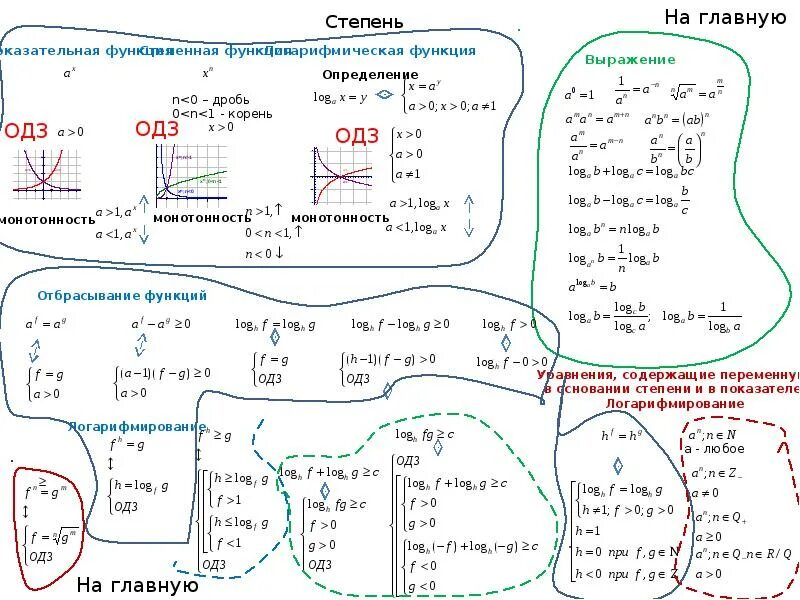 Степень
На главную
оказательная функция Степенная функция Логарифмическая функция
aˣ
xⁿ
Определение
n<0 – дробь
0<n<1 - корень
x>0
logₐ x = y ⇔ { x = a^y
a>0; x>0; a≠1
ОДЗ a>0
ОДЗ
ОДЗ
{ x>0
a>0
a≠1
монотонность
a>1, aˣ ↑
a<1, aˣ ↓
монотонность
n>1, ↑
0<n<1, ↑
n<0 ↓
монотонность
a>1, logₐ x ↑
a<1, logₐ x ↓
Выражение
a⁰=1 1/aⁿ = a^(-n) ⁿ√(a^m) = a^(m/n)
a^m aⁿ = a^(m+n) aⁿbⁿ = (ab)ⁿ
a^m/aⁿ = a^(m-n) aⁿ/bⁿ = (a/b)ⁿ
logₐ b + logₐ c = logₐ bc
logₐ b − logₐ c = logₐ b/c
logₐ bⁿ = n logₐ b
log_(aⁿ) b = 1/n logₐ b
a^(logₐ b) = b
logₐ b = log_c b / log_c a; logₐ b = 1 / log_b a
Отбрасывание функций
a^f = a^g
a^f − a^g ≥ 0
log_h f = log_h g
log_h f − log_h g ≥ 0
log_h f > 0
{ f = g
a > 0
{ (a−1)(f−g) ≥ 0
a > 0
{ f = g
ОДЗ
{ (h−1)(f−g) > 0
ОДЗ
log_h f − 0 > 0
Уравнения, содержащие переменную
в основании степени и в показателе
Логарифмирование
Логарифмирование
f^h = g
↕
{ h = log_f g
ОДЗ
f^h ≥ g
↕
{ h ≥ log_f g
f > 1
{ h ≤ log_f g
f < 1
ОДЗ
≥
fⁿ = g^m
↕
{ f = ⁿ√(g^m)
ОДЗ
log_h f + log_h g ≥ c
{ log_h fg ≥ c
f > 0
g > 0
ОДЗ
log_h fg ≥ c
ОДЗ
{ log_h f + log_h g ≥ c
f > 0
g > 0
{ log_h(−f) + log_h(−g) ≥ c
f < 0
g < 0
h^f = h^g
{ log_h f = log_h g
h ≠ 1; f > 0; g > 0
h = 1
h = 0 при f, g ∈ N
h < 0 при f, g ∈ Z
aⁿ; n ∈ N
a - любое
aⁿ; n ∈ Z₋
a ≠ 0
aⁿ; n ∈ Q₊
a ≥ 0
aⁿ; n ∈ Q₋ n ∈ R / Q
a > 0
На главную